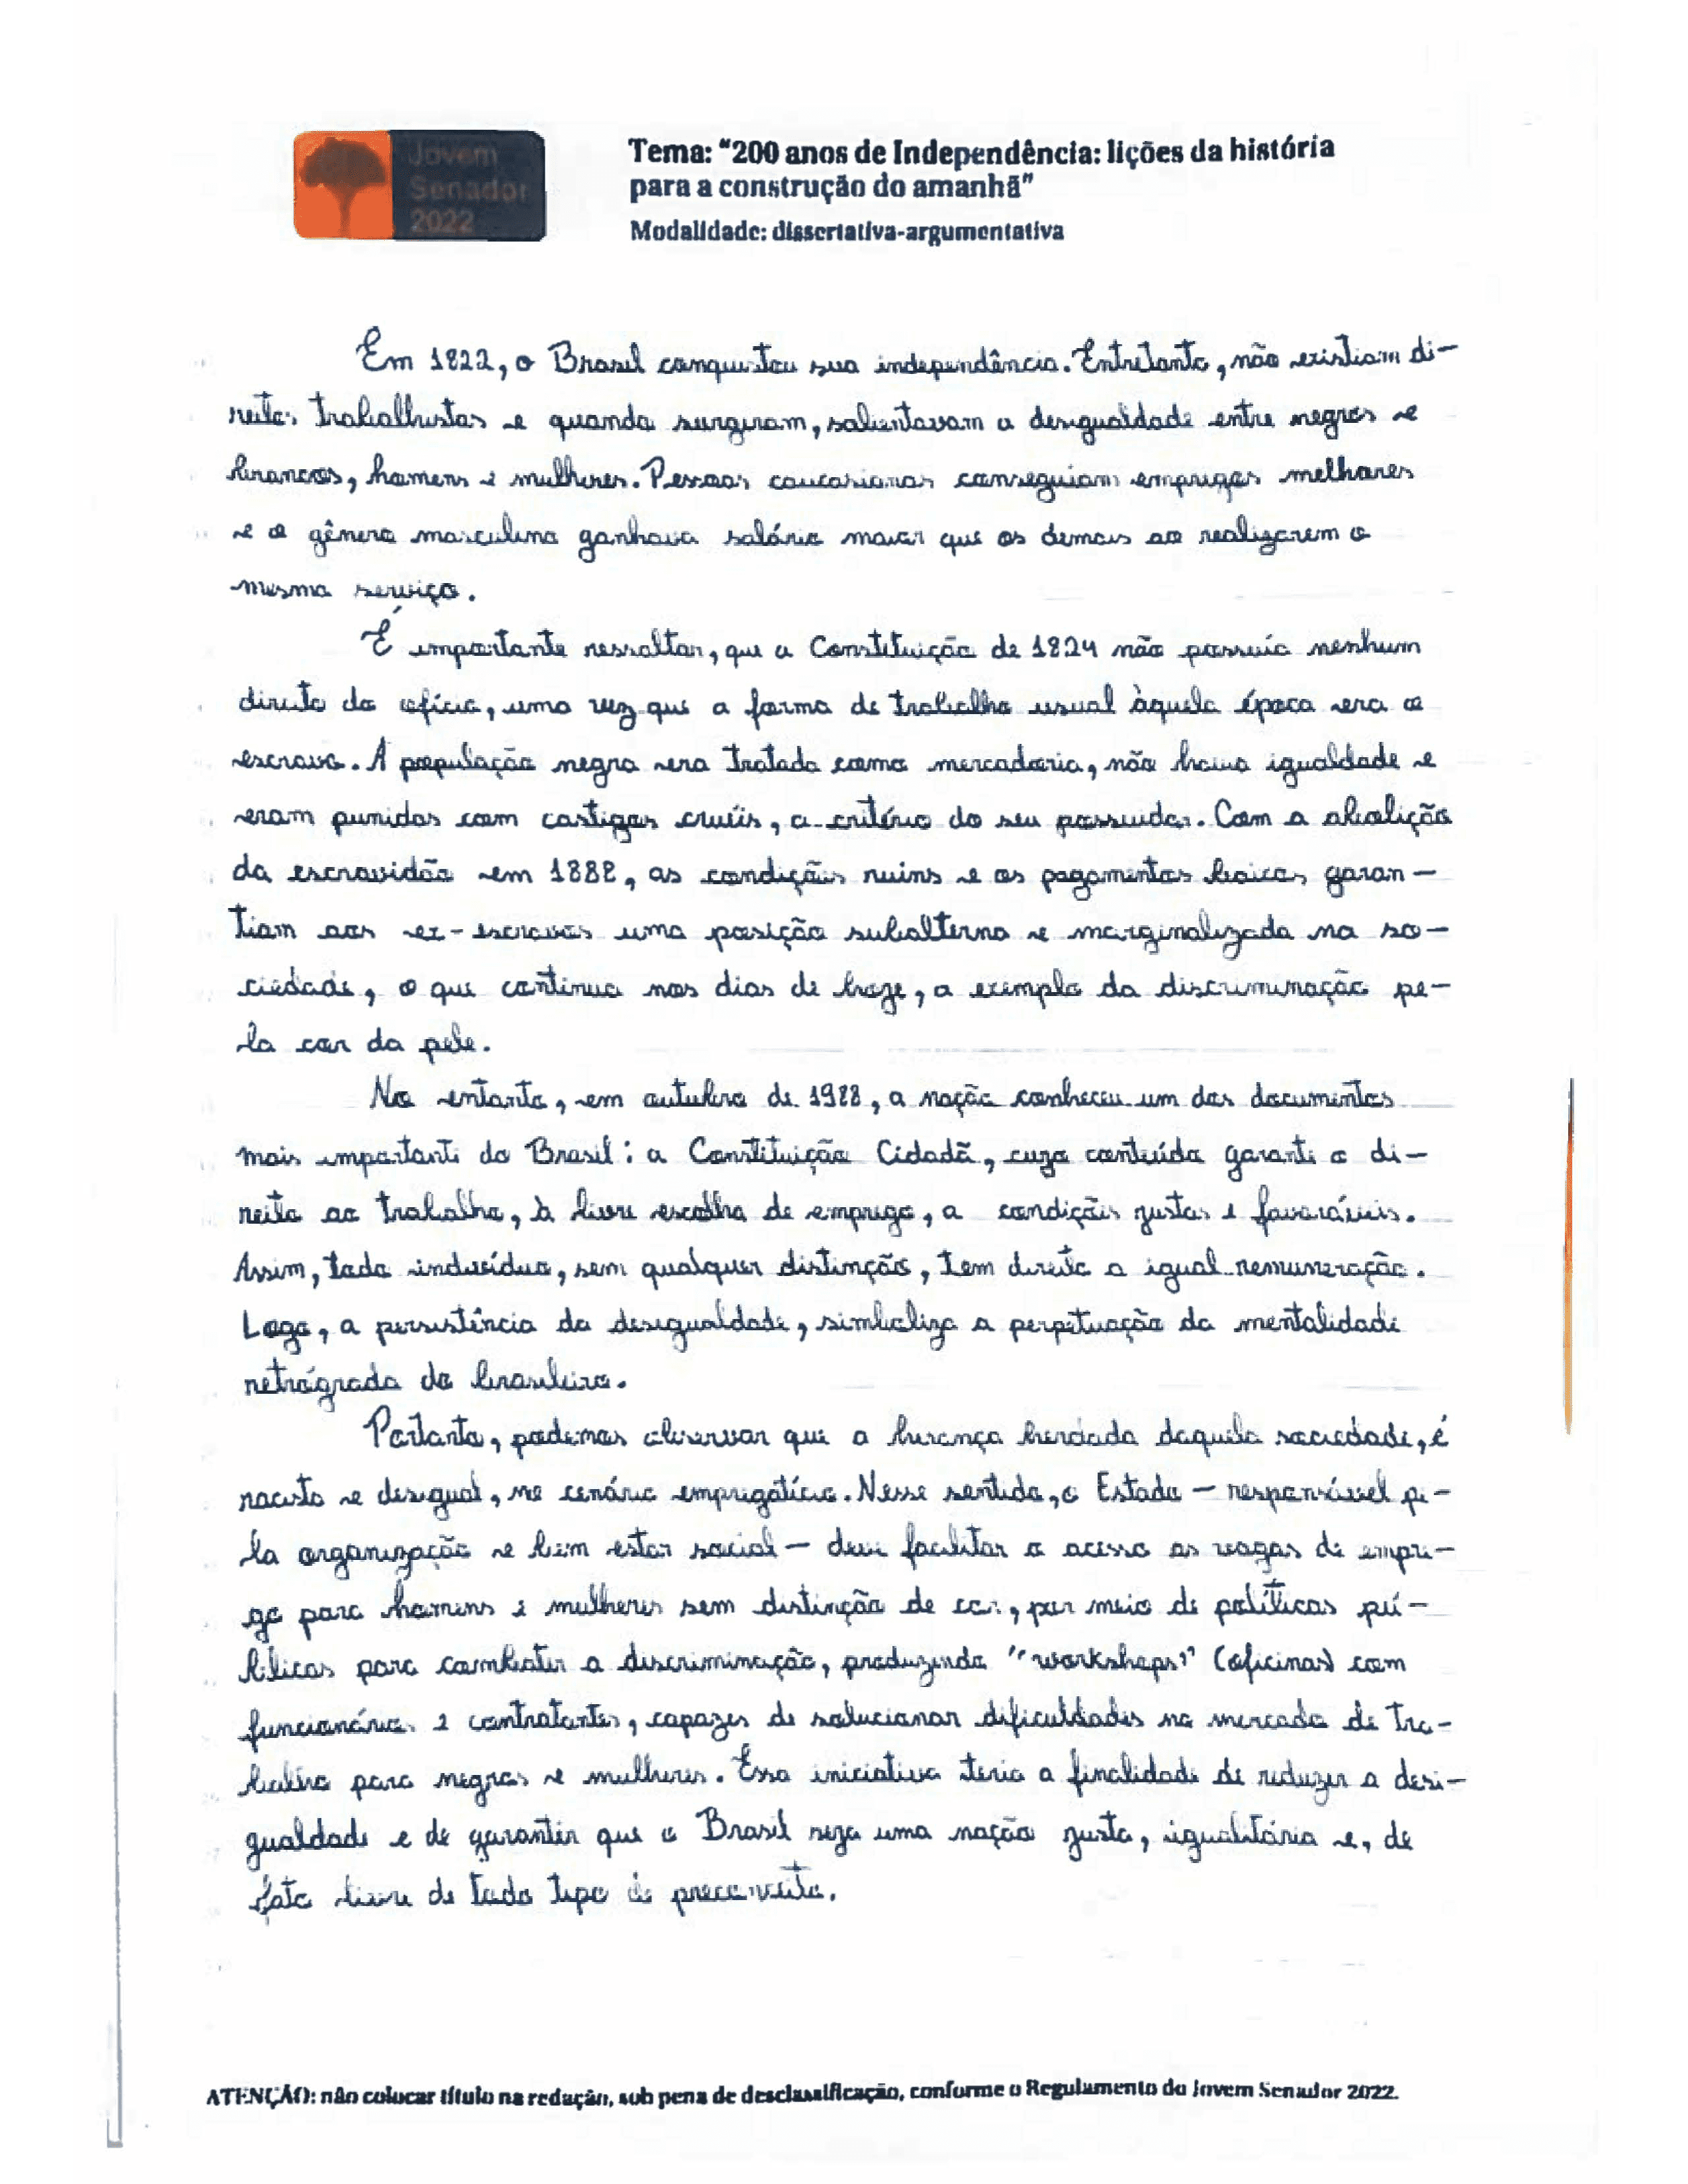 Jovem
Senador
2022
Tema: "200 anos de Independência: lições da história
para a construção do amanhã"
Modalidade: dissertativa-argumentativa
Em 1822, o Brasil conquistou sua independência. Entretanto, não existiam di-
reitos trabalhistas e quando surgiram, salientavam a desigualdade entre negros e
brancos, homens e mulheres. Pessoas caucasianas conseguiam empregos melhores
e o gênero masculino ganhava salário maior que os demais ao realizarem o
mesmo serviço.
É importante ressaltar, que a Constituição de 1824 não possuía nenhum
direito do ofício, uma vez que a forma de trabalho usual àquela época era o
escravo. A população negra era tratada como mercadoria, não havia igualdade e
eram punidos com castigos cruéis, a critério do seu possuidor. Com a abolição
da escravidão em 1888, as condições ruins e os pagamentos baixos garan-
tiam aos ex-escravos uma posição subalterna e marginalizada na so-
ciedade, o que continua nos dias de hoje, a exemplo da discriminação pe-
la cor da pele.
No entanto, em outubro de 1988, a nação conheceu um dos documentos
mais importante do Brasil: a Constituição Cidadã, cujo conteúdo garante o di-
reito ao trabalho, à livre escolha de emprego, a condições justas e favoráveis.
Assim, todo indivíduo, sem qualquer distinção, tem direito a igual remuneração.
Logo, a persistência da desigualdade, simboliza a perpetuação da mentalidade
retrógrada do brasileiro.
Portanto, podemos observar que a herança herdada daquela sociedade, é
racista e desigual, no cenário empregatício. Nesse sentido, o Estado – responsável pe-
la organização e bem estar social – deve facilitar o acesso as vagas de empre-
go para homens e mulheres sem distinção de cor, por meio de políticas pú-
blicas para combater a discriminação, produzindo "workshops" (oficinas) com
funcionários e contratantes, capazes de solucionar dificuldades no mercado de tra-
balho para negros e mulheres. Essa iniciativa teria a finalidade de reduzir a desi-
gualdade e de garantir que o Brasil seja uma nação justa, igualitária e, de
fato livre de todo tipo de preconceito.
ATENÇÃO: não colocar título na redação, sob pena de desclassificação, conforme o Regulamento do Jovem Senador 2022.